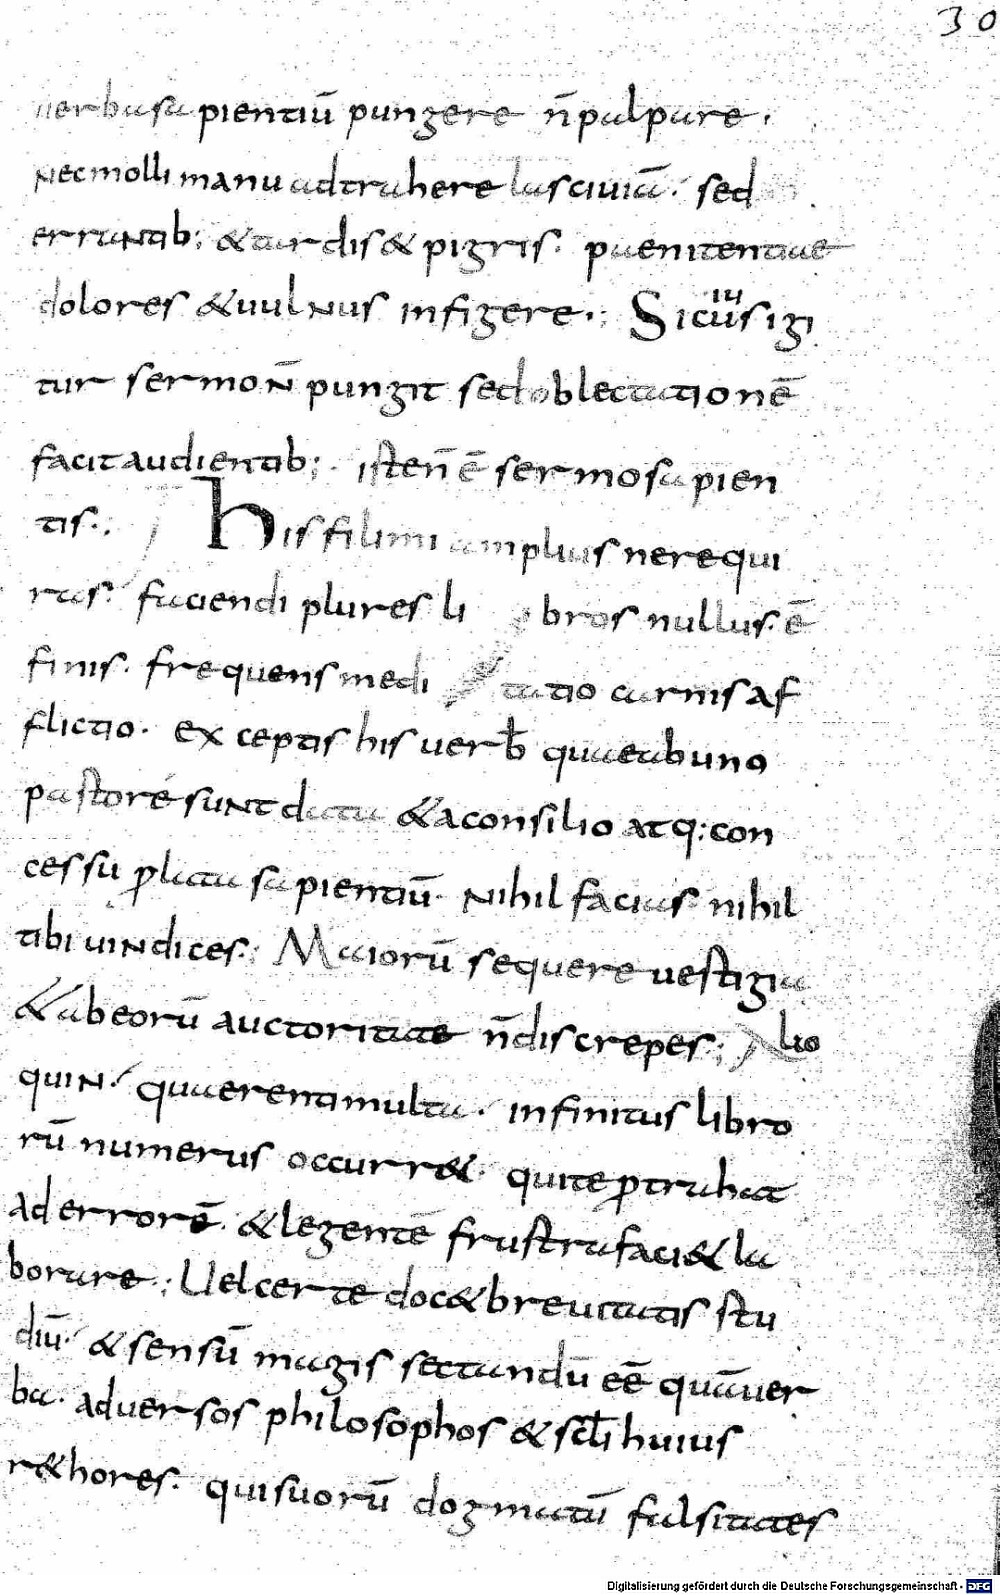 30
uerba sapientiū pungere n̄ palpare.
Nec molli manu adtrahere lasciuiā. sed
errantib; & tardis & pigris. paenitentiae
dolores & uulnus infigere.; Si cuius igi
tur sermo n̄ pungit sed oblectationē
facit audientib;. iste n̄ ē sermo sapien
tis.; His fili mi amplius ne requi
ras. faciendi plures libros nullus. ē
finis. frequens meditatio carnis af
flictio. exceptis his uerb̄ quae ab uno
pastore sunt data & a consilio atq: con
cessu p̄lata sapientiū. Nihil facias nihil
tibi uindices.; Maiorū sequere uestigia
& ab eorū auctoritate n̄ discrepes; Alio
quin. quaerenti multa. infinitus libro
rū numerus occurr&. qui te p̄trahat
ad errorē. & legentē frustra faci& la
borare; Uel certe doc& breuitatis stu
diū. & sensū magis sectandū eē quā uer
ba. aduersos philosophos & scłi huius
r&hores. qui suorū dogmatū falsitates
Digitalisierung gefördert durch die Deutsche Forschungsgemeinschaft - DFG